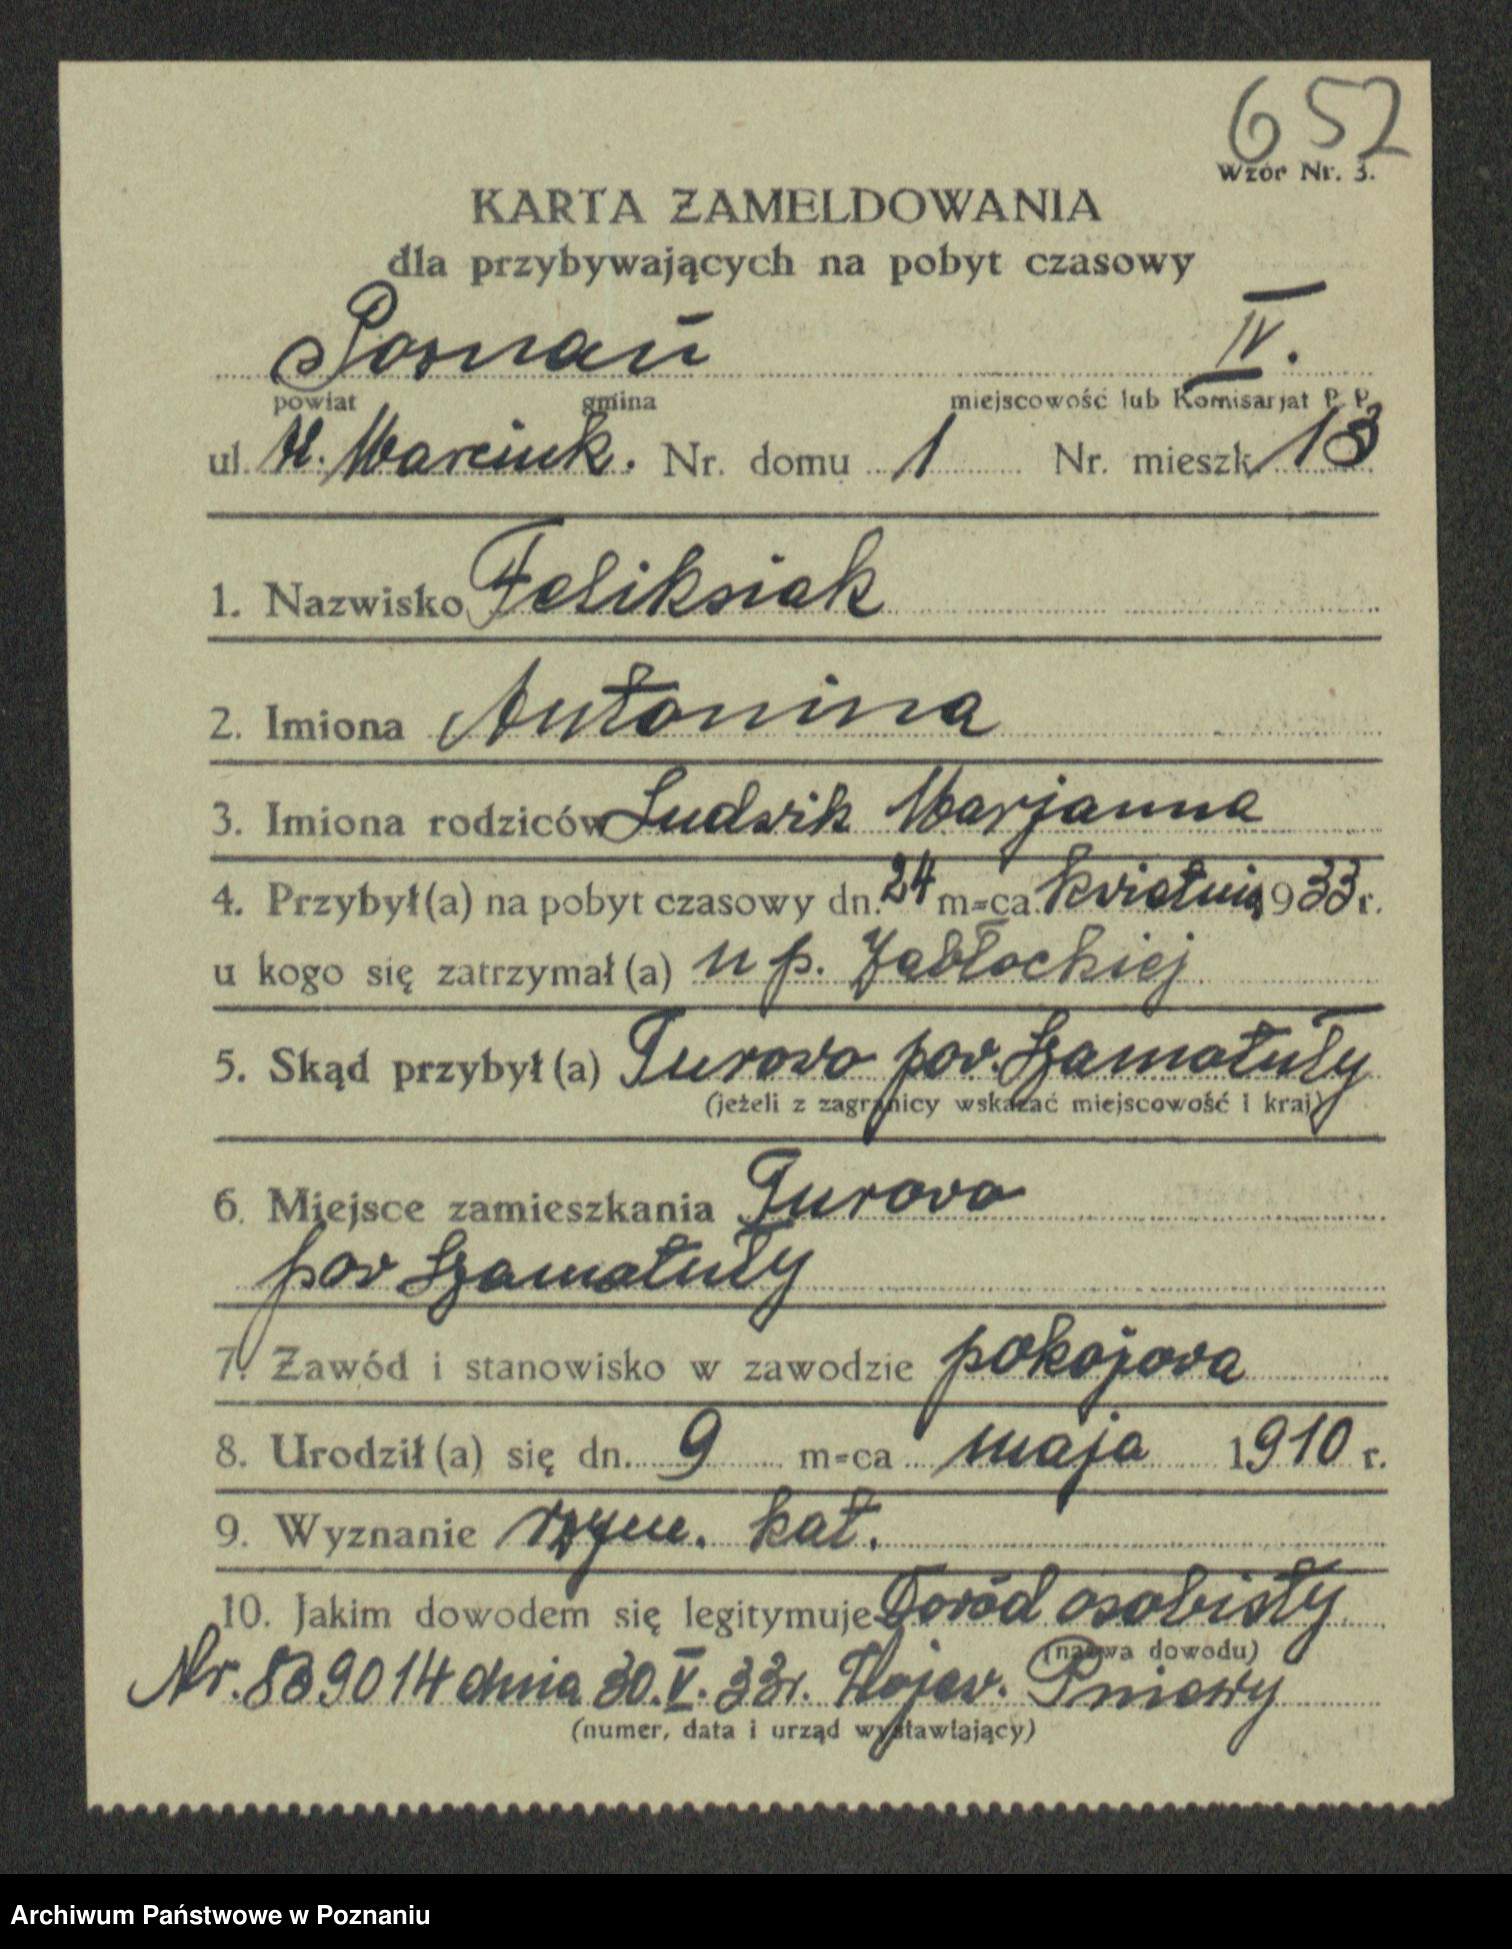 652
Wzór Nr. 3.
KARTA ZAMELDOWANIA
dla przybywających na pobyt czasowy
Poznań IV.
powiat gmina miejscowość lub Komisarjat P. P.
ul. Marcink. Nr. domu 1 Nr. mieszk. 13
1. Nazwisko Feliksiak
2. Imiona Antonina
3. Imiona rodziców Ludwik Marjanna
4. Przybył(a) na pobyt czasowy dn. 24 m-ca kwietnia 1933 r.
u kogo się zatrzymał(a) u p. Jabłockiej
5. Skąd przybył(a) Turowo pow. Szamotuły
(jeżeli z zagranicy wskazać miejscowość i kraj)
6. Miejsce zamieszkania Turowo
pow Szamotuły
7. Zawód i stanowisko w zawodzie pokojowa
8. Urodził(a) się dn. 9 m-ca maja 1910 r.
9. Wyznanie rzym. kat.
10. Jakim dowodem się legitymuje Dowód osobisty
(nazwa dowodu)
Nr. 839014 dnia 30. V. 33r. Pniewy
(numer, data i urząd wystawiający)
Archiwum Państwowe w Poznaniu